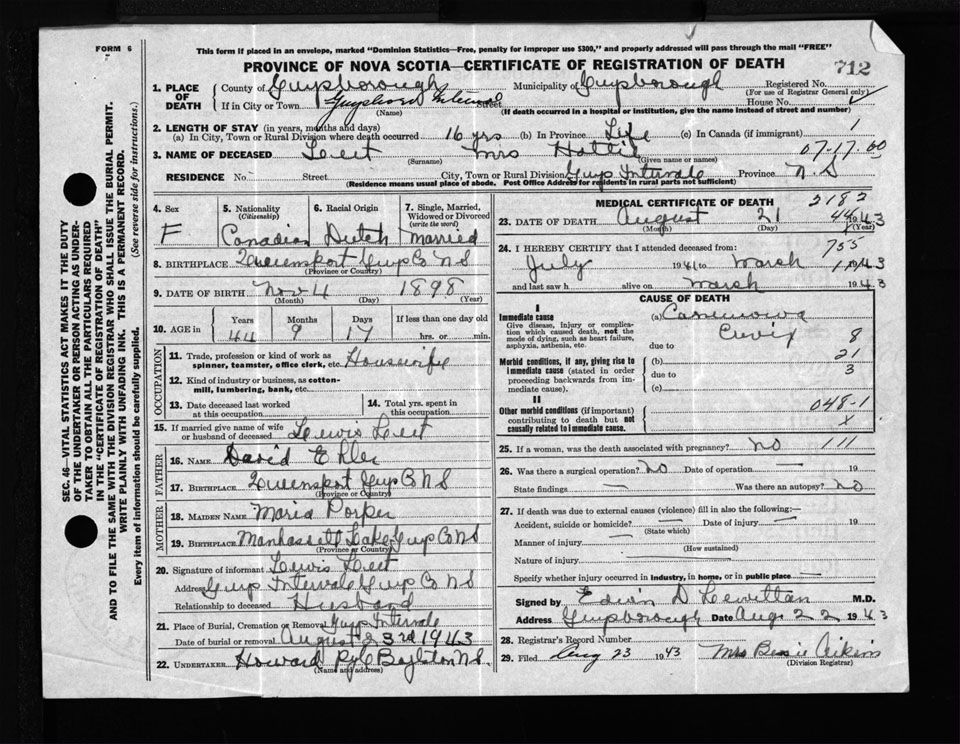 FORM 6
This form if placed in an envelope, marked "Dominion Statistics—Free, penalty for improper use $300," and properly addressed will pass through the mail "FREE"
PROVINCE OF NOVA SCOTIA—CERTIFICATE OF REGISTRATION OF DEATH 712
1. PLACE OF DEATH
County of Guysborough Municipality of Guysborough Registered No.
(For use of Registrar General only)
If in City or Town Guysboro Interval Street House No.
(Name) (If death occurred in a hospital or institution, give the name instead of street and number)
2. LENGTH OF STAY (in years, months and days)
(a) In City, Town or Rural Division where death occurred 16 yrs (b) In Province Life (c) In Canada (if immigrant) 1
3. NAME OF DECEASED Leet Mrs Hattie 07-17.00
(Surname) (Given name or names)
RESIDENCE No. Street City, Town or Rural Division Guys Intervale Province N.S
(Residence means usual place of abode. Post Office Address for residents in rural parts not sufficient)
4. Sex 5. Nationality (Citizenship) 6. Racial Origin 7. Single, Married, Widowed or Divorced (write the word)
F Canadian Dutch Married
8. BIRTHPLACE Queensport Guys Co NS
(Province or Country)
9. DATE OF BIRTH Nov 4 1898
(Month) (Day) (Year)
10. AGE in Years Months Days If less than one day old
44 9 17 hrs. or min.
OCCUPATION
11. Trade, profession or kind of work as spinner, teamster, office clerk, etc. Housewife
12. Kind of industry or business, as cotton-mill, lumbering, bank, etc.
13. Date deceased last worked at this occupation
14. Total yrs. spent in this occupation
15. If married give name of wife or husband of deceased Lewis Leet
FATHER
16. NAME David Ehler
17. BIRTHPLACE Queensport Guys Co N S
(Province or Country)
MOTHER
18. MAIDEN NAME Maria
19. BIRTHPLACE Lake Guys Co NS
(Province or Country)
20. Signature of informant Lewis Leet
Address Guys Intervale Guys Co N S
Relationship to deceased Husband
21. Place of Burial, Cremation or Removal Guys Intervale
Date of burial or removal August 23rd 1943
22. UNDERTAKER Howard Pyle Boylston N S.
(Name and address)
MEDICAL CERTIFICATE OF DEATH 2182
23. DATE OF DEATH August 21 44 1943
(Month) (Day) (Year)
24. I HEREBY CERTIFY that I attended deceased from: 755
July 1941 to March 1943
and last saw h alive on March 1943
CAUSE OF DEATH
I
Immediate cause
Give disease, injury or complication which caused death, not the mode of dying, such as heart failure, asphyxia, asthenia, etc.
(a) Carcinoma
due to Cervix 8
Morbid conditions, if any, giving rise to immediate cause (stated in order proceeding backwards from immediate cause).
(b) 21
due to 3
(c)
II
Other morbid conditions (if important) contributing to death but not causally related to immediate cause.
048-1
X
25. If a woman, was the death associated with pregnancy? No 111
26. Was there a surgical operation? No Date of operation — 19
State findings — Was there an autopsy? No
27. If death was due to external causes (violence) fill in also the following:—
Accident, suicide or homicide? — Date of injury — 19
(State which)
Manner of injury —
(How sustained)
Nature of injury
Specify whether injury occurred in industry, in home, or in public place —
Signed by Edwin D M.D.
Address Guysborough Date Aug 22 1943
28. Registrar's Record Number
29. Filed Aug 23 1943 Mrs Bessie Aikins
(Division Registrar)
SEC. 46—VITAL STATISTICS ACT MAKES IT THE DUTY
OF THE UNDERTAKER OR PERSON ACTING AS UNDERTAKER TO OBTAIN ALL THE PARTICULARS REQUIRED
IN THE "CERTIFICATE OF REGISTRATION OF DEATH"
AND TO FILE THE SAME WITH THE DIVISION REGISTRAR WHO SHALL ISSUE THE BURIAL PERMIT.
WRITE PLAINLY WITH UNFADING INK. THIS IS A PERMANENT RECORD.
Every item of information should be carefully supplied. (See reverse side for instructions.)